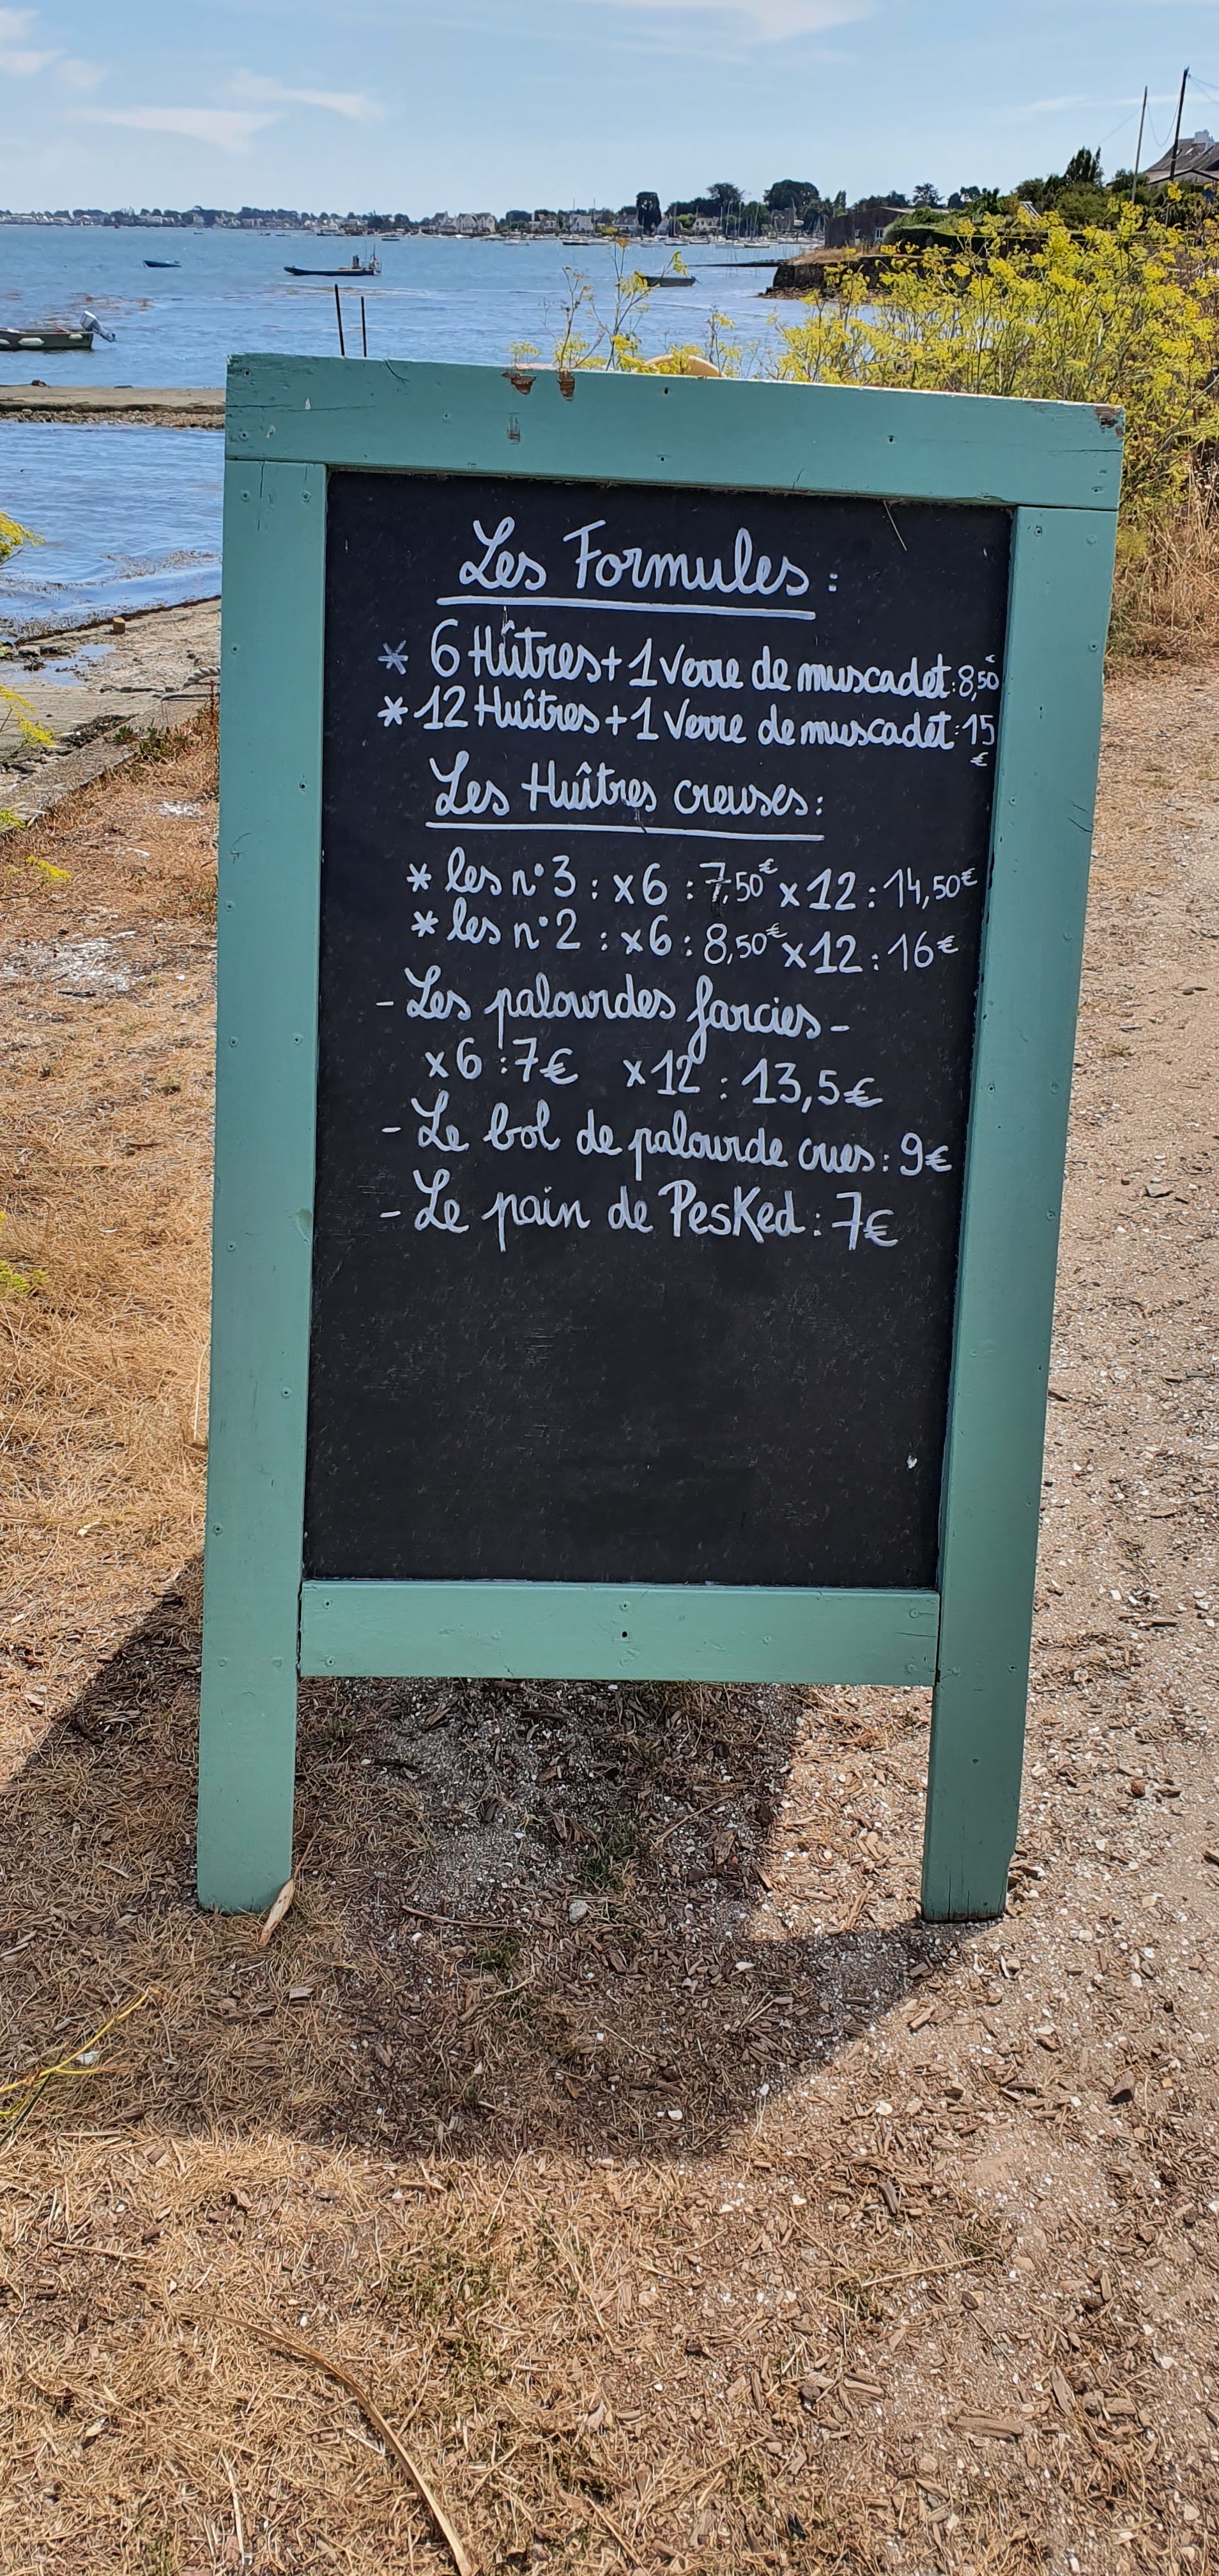 Les Formules :
* 6 Hûîtres + 1 Verre de muscadet : 8,50€
* 12 Huîtres + 1 Verre de muscadet : 15
€
Les Huîtres creuses :
* les n°3 : x6 : 7,50€ x12 : 14,50€
* les n°2 : x6 : 8,50€ x12 : 16€
- Les palourdes farcies -
x6 : 7€ x12 : 13,5€
- Le bol de palourde crues : 9€
- Le pain de PesKed : 7€